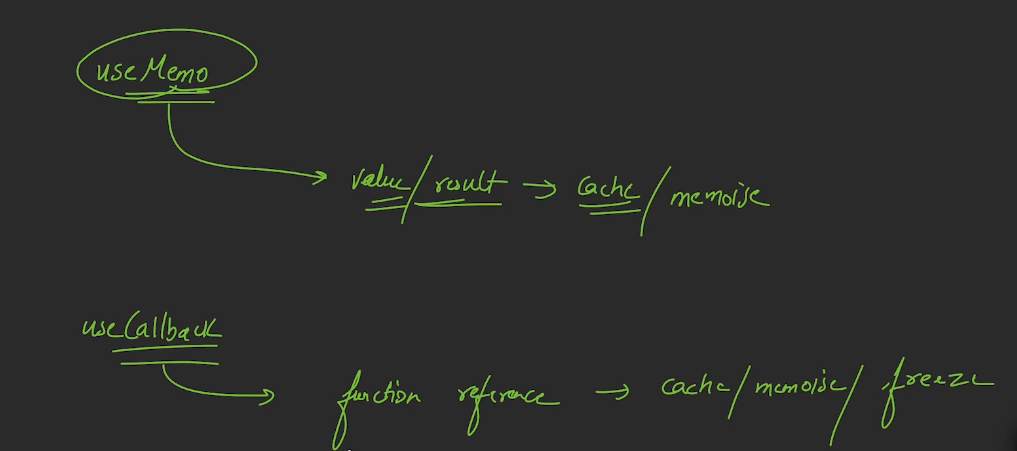 useMemo
value/result → cache/memoise
useCallback
function reference → cache/memoise/freeze